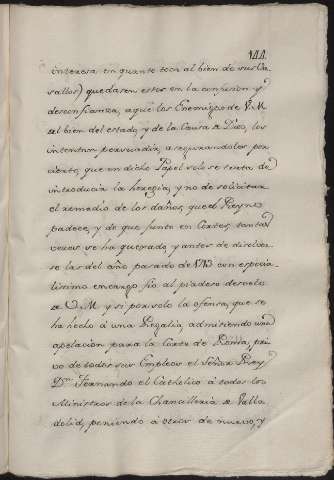 144
interesa en quanto toca al bien de sus Va
sallos) quedasen estos en la confusion y
desconfianza, a que los Enemigos de V. M
al bien del estado, y de la Causa de Dios, los
intentan persuadir, asegurandoles por
cierto, que en dicho Papel solo se trata de
introducir la heregia, y no de solicitar
el remedio de los daños, que el Reyno
padece, y de que junto en Cortes, tantas
veces se ha quexado, y antes de disolver
se las del año pasado de 1713 con especia
lissimo encargo fio al piadoso desvelo
de V. M y si por solo la ofensa, que se
ha hecho á una Regalia, admitiendo una
apelacion para la Corte de Roma, pri
vó de todos sus Empleos el Señor Rey
Dn. Fernando el Catholico á todos los
Ministros de la Chancilleria de Valla
dolid, poniendo á otros de nuevo, y